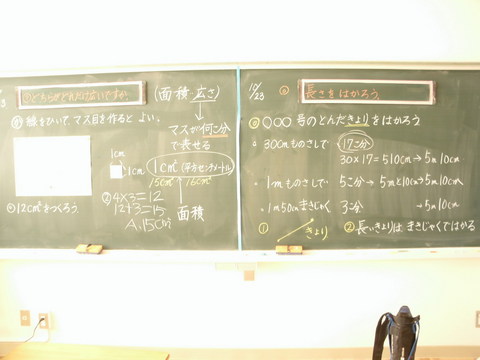 どちらがどれだけ広いですか。
(面積 広さ)
線をひいて マス目を作ると よい。
マスが何こ分
で表せる
1cm
1cm
1cm²(平方センチメートル)
15cm² 16cm²
面積
・12cm²をつくろう。
② 4×3=12
12+3=15
A.15cm²
10/23
長さを はかろう。
〇〇〇号のとんだきょりをはかろう
・30cmものさしで
17こ分
30×17=510cm→5m10cm
・1mものさしで
5こ分→5mと10cm→5m10cm
・1m50cmまきじゃく
3こ分
→5m10cm
①
きょり
②長いきょりは まきじゃくではかる